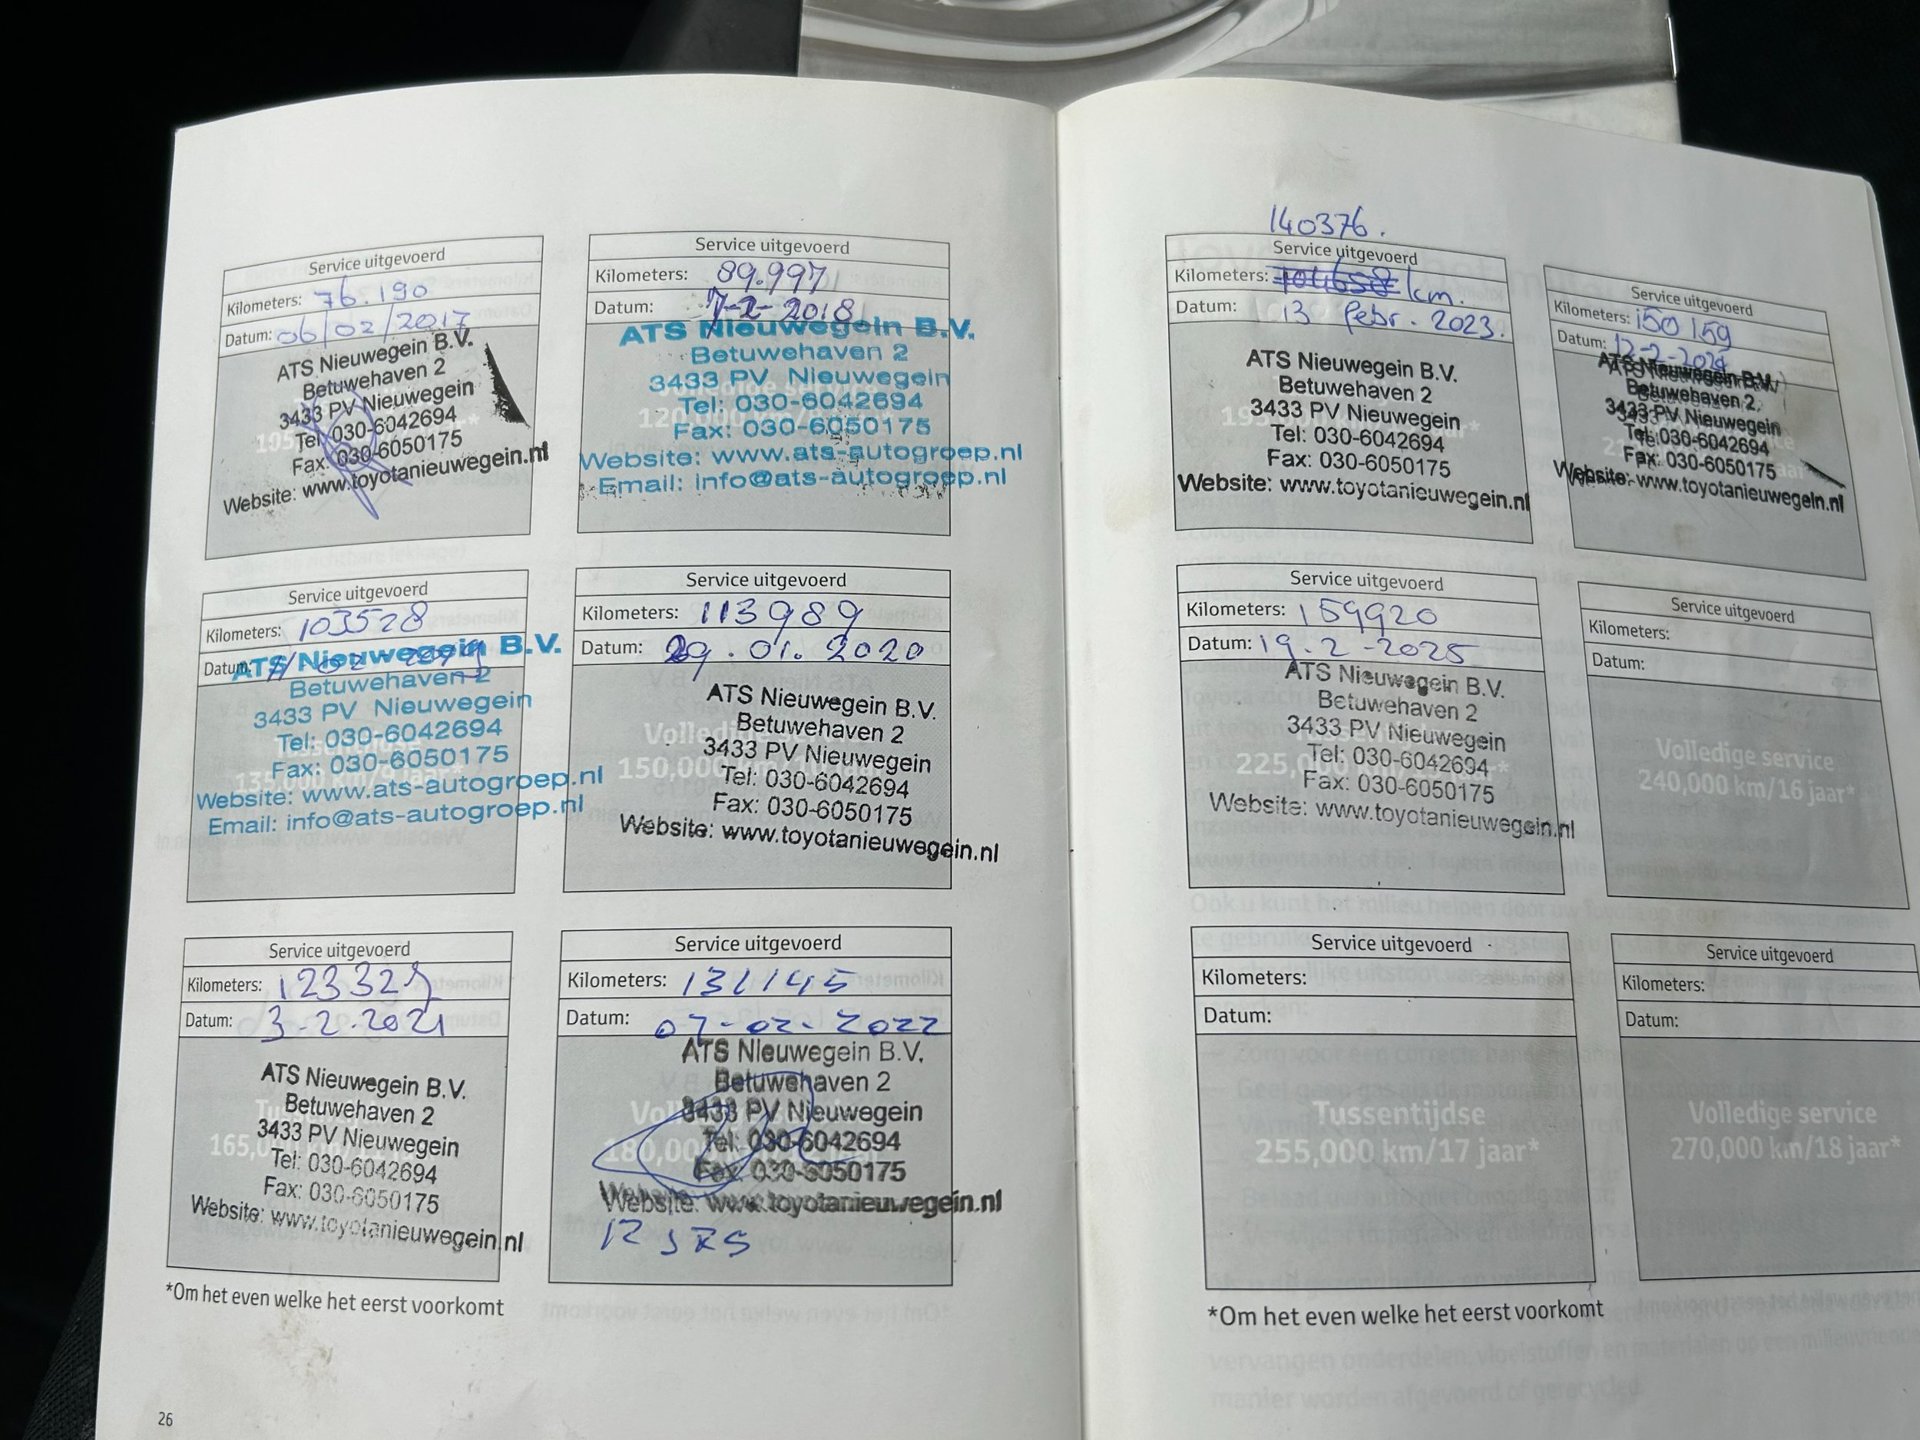 Service uitgevoerd
Kilometers: 76.190
Datum: 06/02/2017
ATS Nieuwegein B.V.
Betuwehaven 2
3433 PV Nieuwegein
Tel: 030-6042694
Fax: 030-6050175
Website: www.toyotanieuwegein.nl
Service uitgevoerd
Kilometers: 89.997
Datum: 7-2-2018
ATS Nieuwegein B.V.
Betuwehaven 2
3433 PV Nieuwegein
Tel: 030-6042694
Fax: 030-6050175
Website: www.ats-autogroep.nl
Email: info@ats-autogroep.nl
Service uitgevoerd
Kilometers: 103528
Datum:
ATS Nieuwegein B.V.
Betuwehaven 2
3433 PV Nieuwegein
Tel: 030-6042694
Fax: 030-6050175
135,000 km/9 jaar*
Website: www.ats-autogroep.nl
Email: info@ats-autogroep.nl
Service uitgevoerd
Kilometers: 113989
Datum: 29.01.2020
ATS Nieuwegein B.V.
Betuwehaven 2
3433 PV Nieuwegein
Tel: 030-6042694
Fax: 030-6050175
Website: www.toyotanieuwegein.nl
Service uitgevoerd
Kilometers:
Datum: 3-2-2021
ATS Nieuwegein B.V.
Betuwehaven 2
3433 PV Nieuwegein
Tel: 030-6042694
Fax: 030-6050175
Website: www.toyotanieuwegein.nl
Service uitgevoerd
Kilometers: 131145
Datum: 07-02-2022
ATS Nieuwegein B.V.
Betuwehaven 2
3433 PV Nieuwegein
Tel: 030-6042694
Fax: 030-6050175
Website: www.toyotanieuwegein.nl
*Om het even welke het eerst voorkomt
26
140376.
Service uitgevoerd
Kilometers: km.
Datum: 13 febr. 2023.
ATS Nieuwegein B.V.
Betuwehaven 2
3433 PV Nieuwegein
Tel: 030-6042694
Fax: 030-6050175
Website: www.toyotanieuwegein.nl
Service uitgevoerd
Kilometers: 150159
Datum: 12-2-2024
ATS Nieuwegein B.V.
Betuwehaven 2
3433 PV Nieuwegein
Tel: 030-6042694
Fax: 030-6050175
Website: www.toyotanieuwegein.nl
Service uitgevoerd
Kilometers: 159920
Datum: 19-2-2025
ATS Nieuwegein B.V.
Betuwehaven 2
3433 PV Nieuwegein
Tel: 030-6042694
Fax: 030-6050175
Website: www.toyotanieuwegein.nl
Service uitgevoerd
Kilometers:
Datum:
Volledige service
240,000 km/16 jaar*
Service uitgevoerd
Kilometers:
Datum:
Tussentijdse
255,000 km/17 jaar*
Service uitgevoerd
Kilometers:
Datum:
Volledige service
270,000 km/18 jaar*
*Om het even welke het eerst voorkomt